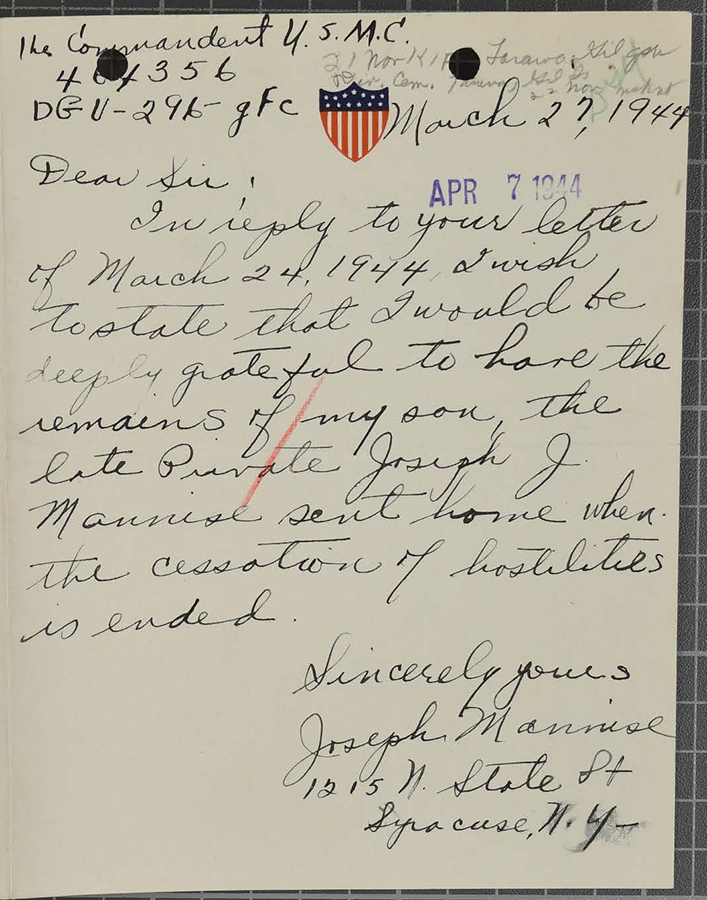 The Commandent U.S.M.C.
464356
DGU-296-gfc
21 Nov KIA Tarawa, Gil
Div. Cem. Tarawa, Gil Is
22 Nov
March 27, 1944
Dear Sir,
APR 7 1944
In reply to your letter
of March 24, 1944, I wish
to state that I would be
deeply grateful to have the
remains of my son, the
late Private Joseph J.
Mannise sent home when
the cessation of hostilities
is ended.
Sincerely yours
Joseph Mannise
1215 N. State St
Syracuse, N.Y-